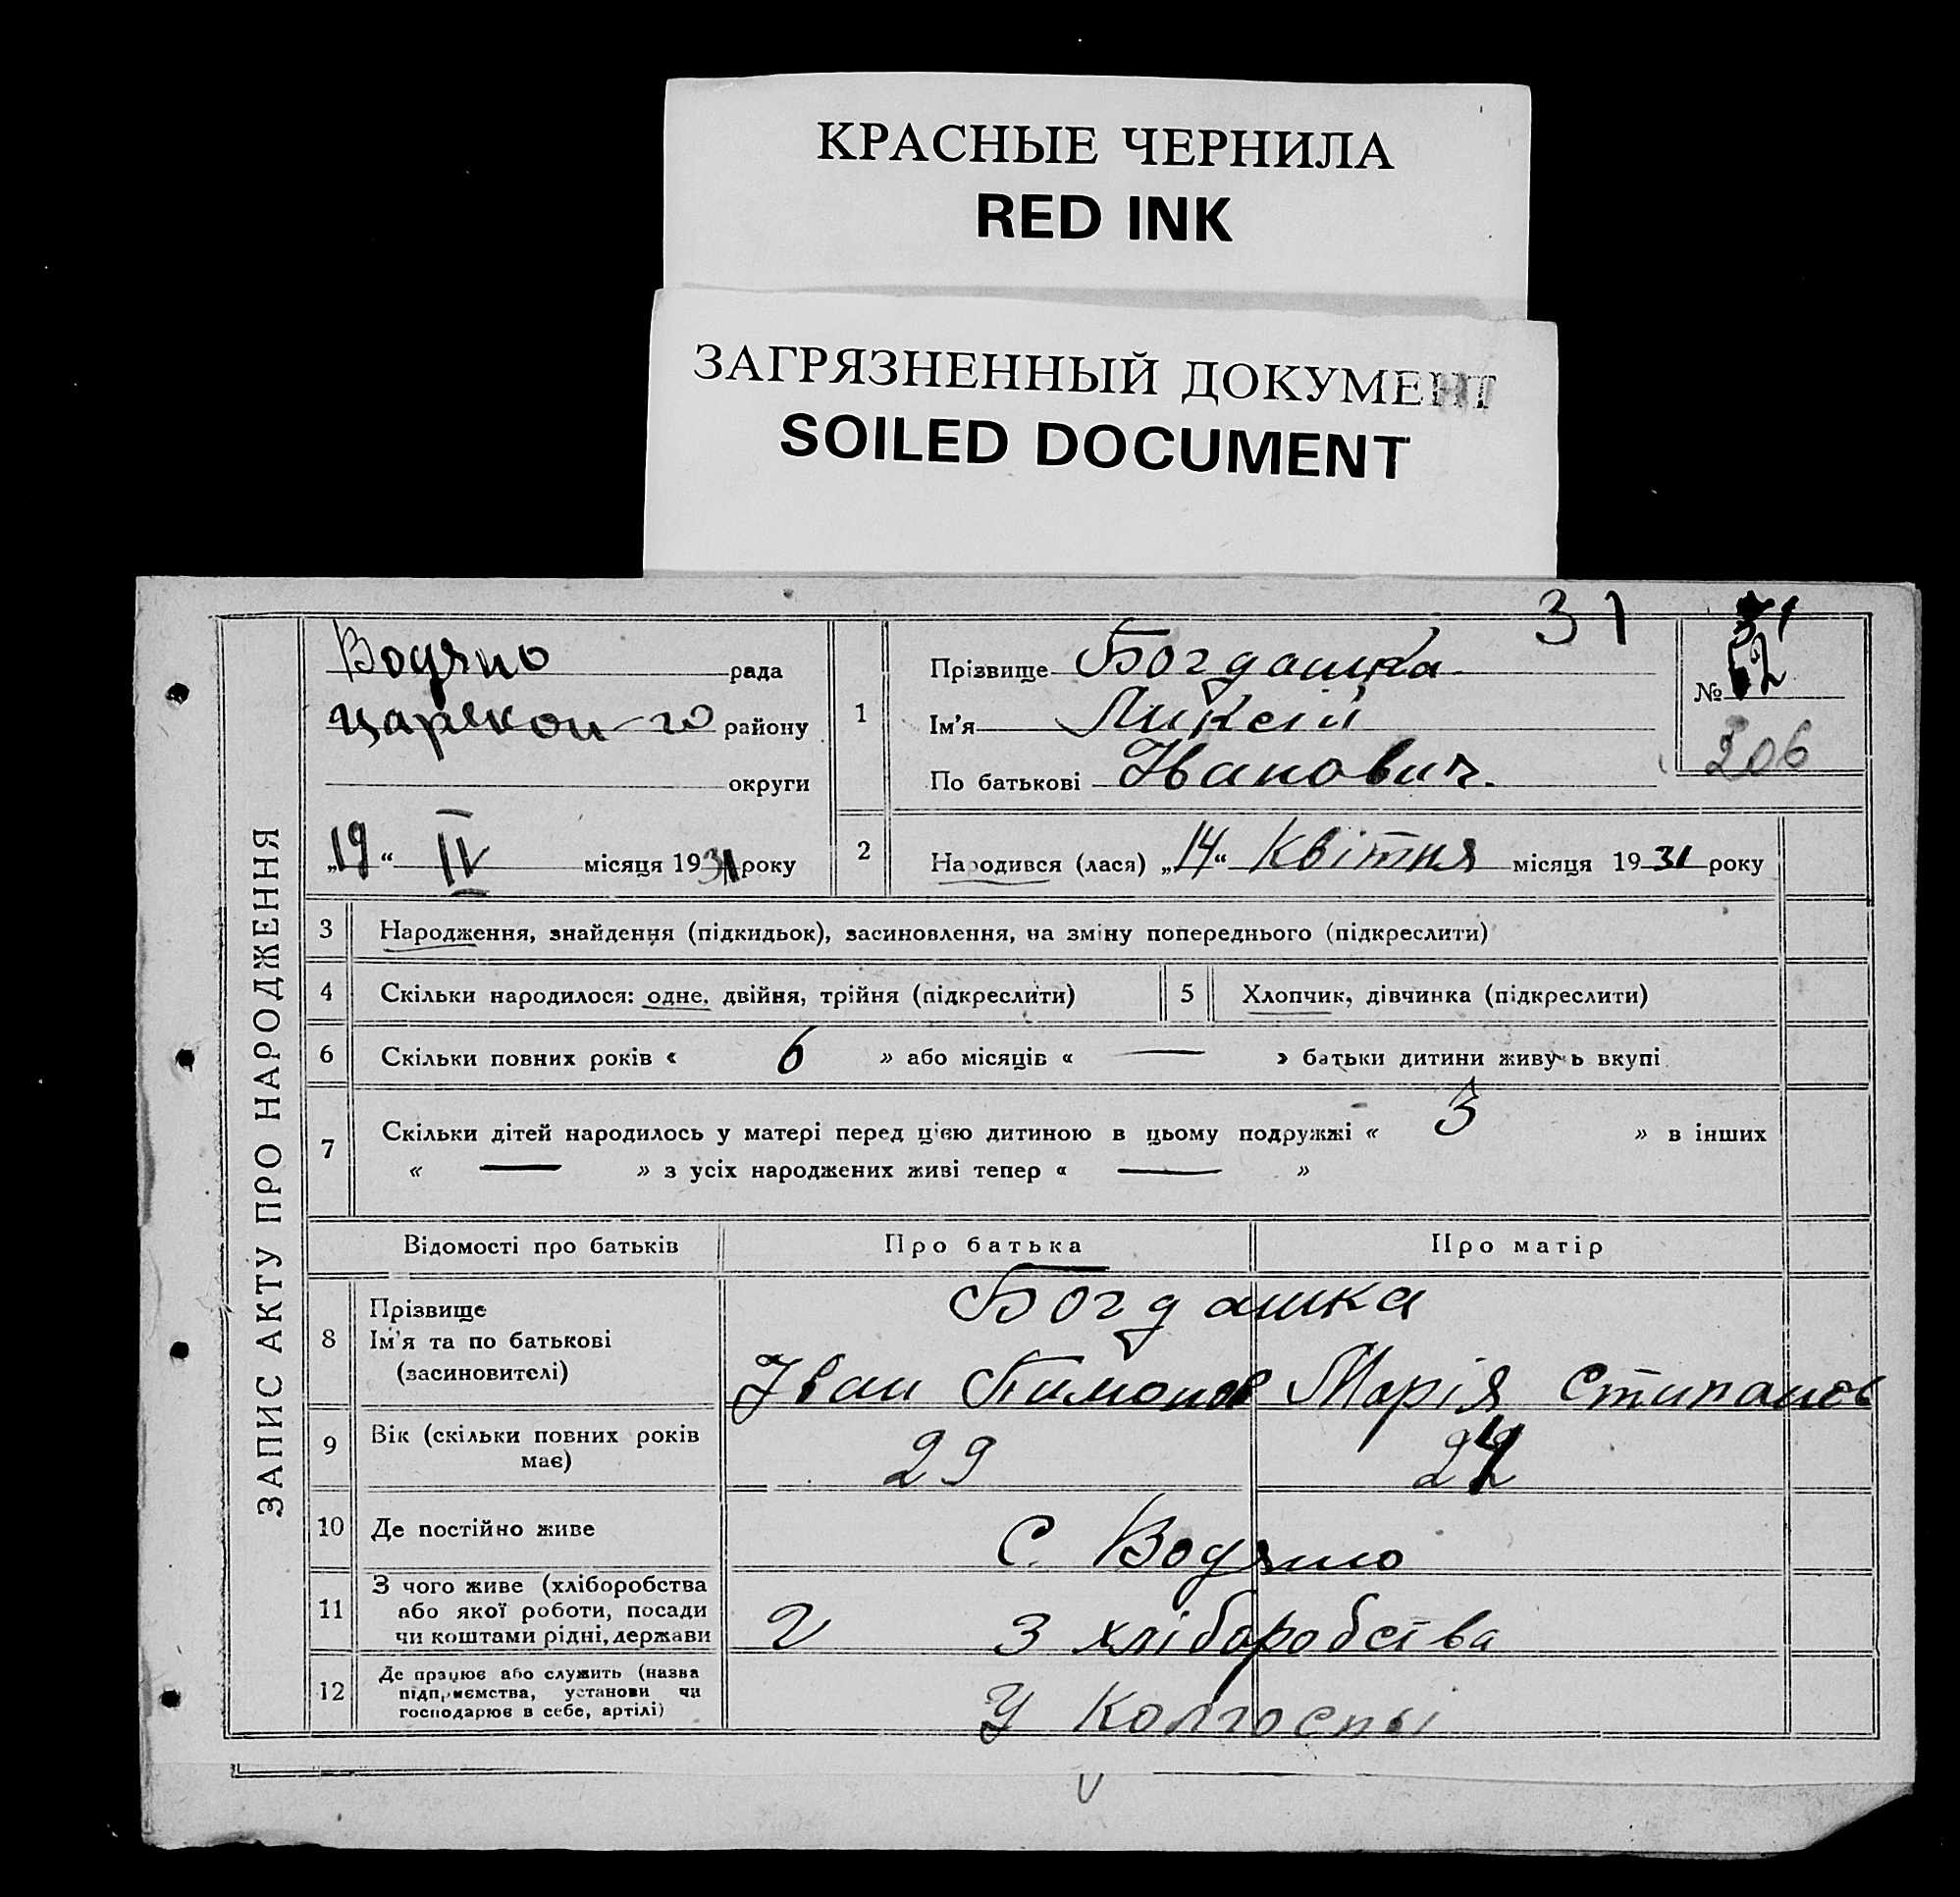 КРАСНЫЕ ЧЕРНИЛА
RED INK
ЗАГРЯЗНЕННЫЙ ДОКУМЕНТ
SOILED DOCUMENT
31
ЗАПИС АКТУ ПРО НАРОДЖЕННЯ
Водяно рада
району
округи
„19“ IV місяця 1931 року
1
Прізвище Богдашка
Ім'я Ликсій
По батькові Іванович.
№ 62
306
2 Народився (лася) „14“ Квітня місяця 1931 року
3 Народження, знайдення (підкидьок), засиновлення, на зміну попереднього (підкреслити)
4 Скільки народилося: одне, двійня, трійня (підкреслити) 5 Хлопчик, дівчинка (підкреслити)
6 Скільки повних років « 6 » або місяців « — » батьки дитини живуть вкупі
7 Скільки дітей народилось у матері перед цією дитиною в цьому подружжі « 3 » в інших
« — » з усіх народжених живі тепер « — »
Відомості про батьків Про батька Про матір
8 Прізвище Богдашка
Ім'я та по батькові
(засиновителі) Іван Марія Стипанов
9 Вік (скільки повних років
має) 29
10 Де постійно живе С. Водяно
11 З чого живе (хліборобства
або якої роботи, посади
чи коштами рідні, держави З хліборобства
12 Де працює або служить (назва
підприємства, установи чи
господарює в себе, артілі) У Колгоспы